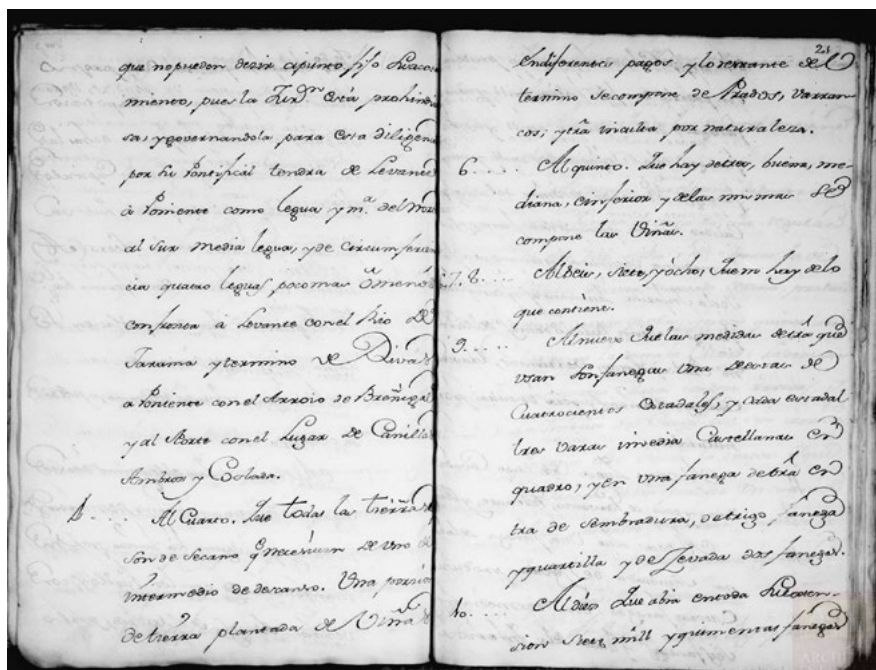 que no pueden dezir apunto fijo su
miento, pues la Jurdn. está
sa, y governandola para esta diligen
por su Pontifical tendra de Levante
à Poniente como legua y ma. del Nor
al Sur media legua, y de circumferen
cia quatro leguas poco mas ò menos
confronta à Levante con el Rio de
Jarama y termino de Rivas
a Poniente con el Arroio de Breñigal
y al Norte con el Lugar de Canilla
Ambroz y Coslada.
4.... Al Cuarto. Que todas las tierras
son de Secano q necesitan de uno de
intermedio de descanso. Una porcion
de tierra plantada de Viñas
23
en diferentes pagos y lo restante del
termino se compone de Prados, varran
cos, y tra inculta por naturaleza.
6.... Al quinto. Que hay de tres, buena, me
diana, è inferior y de las mismas se
compone las Viñas.
7.8.... Al seis, siete, y ocho, Que no hay de lo
que contiene.
9.... Al nueve Que las medidas de tra que
usan son fanegas una de estas de
Cuatrocientos estadales, y cada estadal
tres varas y media Castellanas en
quadro, y en una fanega de tra en
tra de sembradura, de trigo, fanega
y quartilla y de Zevada dos fanegas.
10.... Al diez Que abra en toda su exten-
sion siete mill y quinientas fanegas